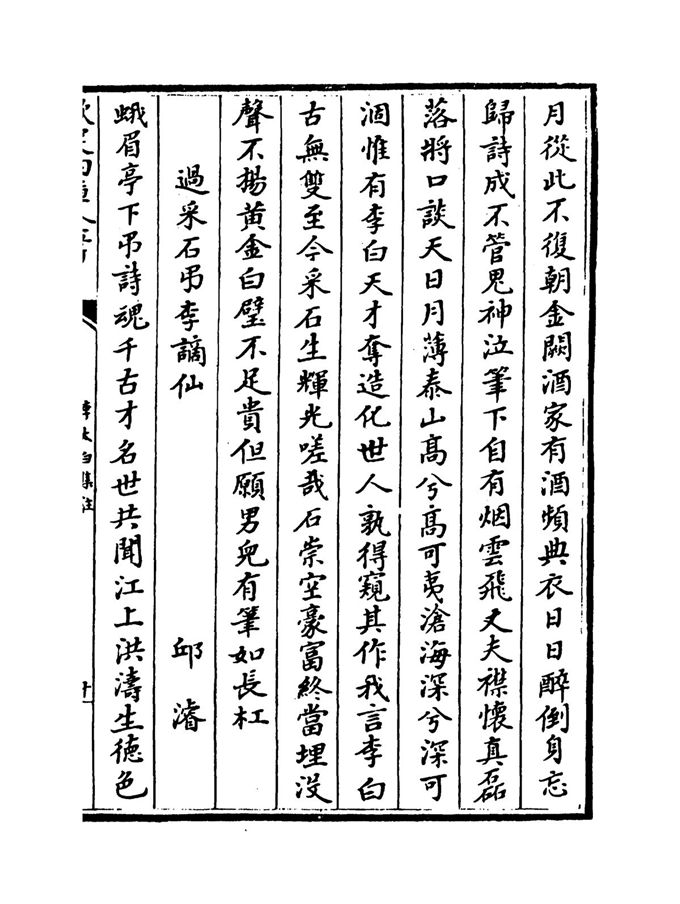 月從此不復朝金闕酒家有酒頻典衣日日醉倒身忘
歸詩成不管鬼神泣筆下自有烟雲飛丈夫襟懷真磊
落將口談天日月薄泰山髙兮髙可夷滄海深兮深可
涸惟有李白天才奪造化世人孰得窺其作我言李白
古無雙至今采石生輝光嗟哉石崇空豪富終當埋没
聲不揚黄金白璧不足貴但願男兒有筆如長杠
過采石弔李謫仙
邱濬
蛾眉亭下弔詩魂千古才名世共聞江上洪濤生徳色
李太白集注